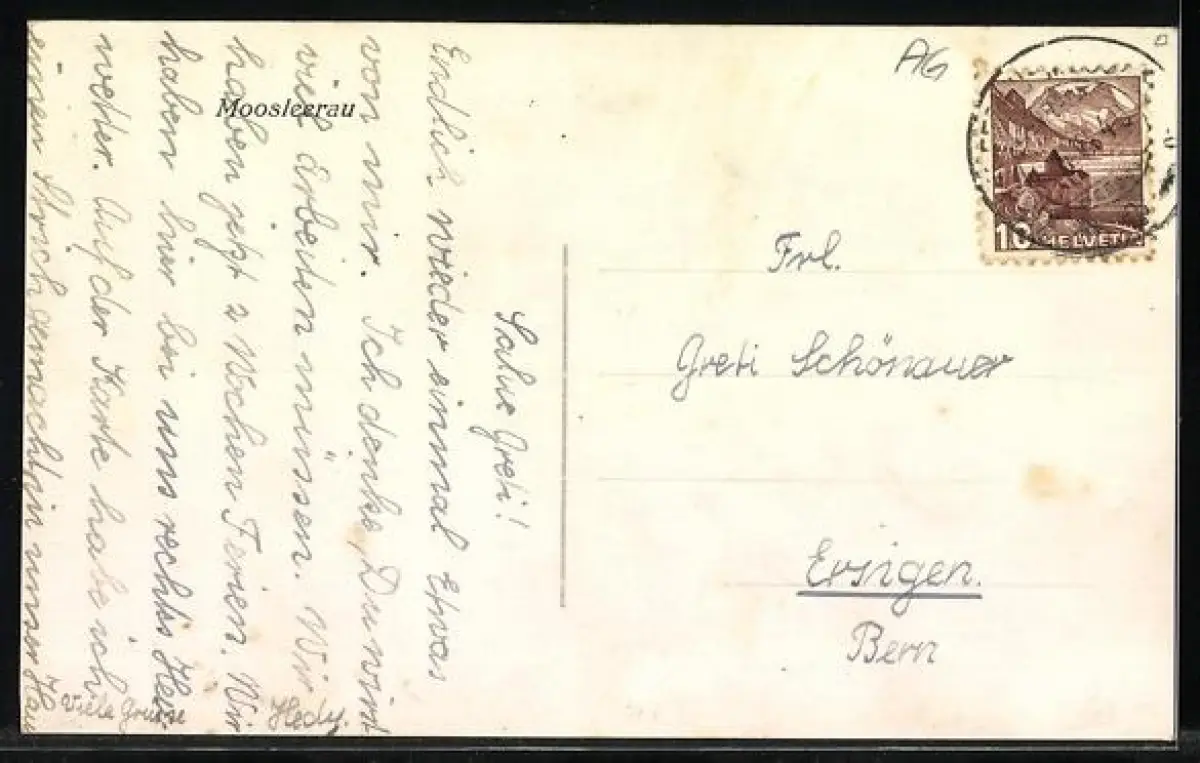 Moosleerau
Salue Greti!
Endlich wieder einmal etwas
von mir. Ich denke, Du wirst
viel Arbeiten müssen. Wir
haben jetzt 2 Wochen Ferien. Wir
haben hier bei uns rechts Heu-
wetter. Auf der Karte habe ich
einen Strich gemacht in unser Haus
Viele Grüsse
Hedy.
AG
10 HELVETIA
Frl.
Greti Schönauer
Ersigen.
Bern